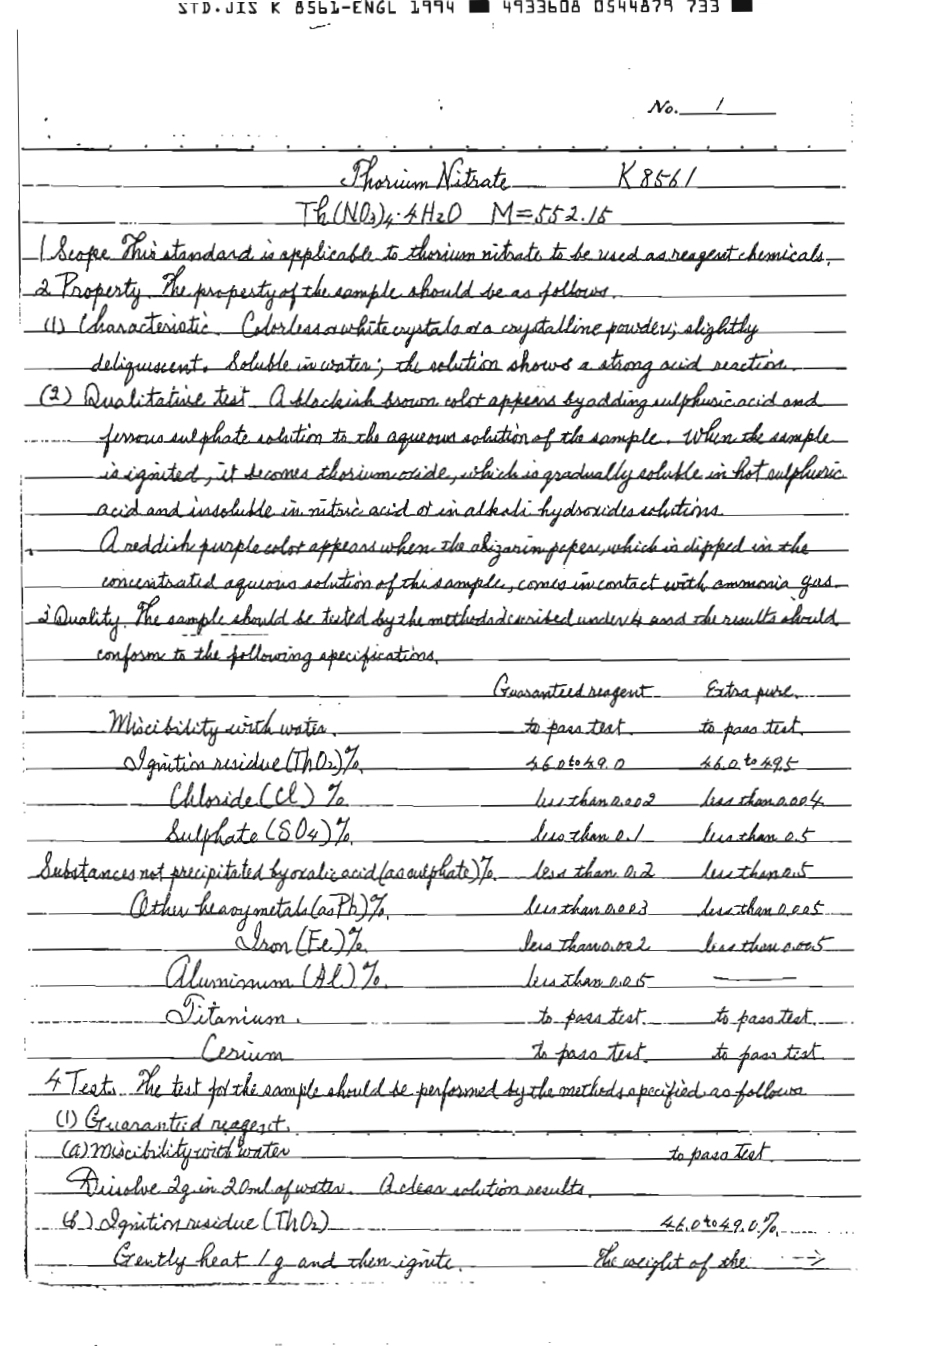 STD.JIS K 8561-ENGL 1994 ■ 4933608 0544879 733 ■
No. 1
Thorium Nitrate K 8561
Th(NO3)4·4H2O M=552.15
1 Scope This standard is applicable to thorium nitrate to be used as reagent chemicals.
2 Property. The property of the sample should be as follows.
(1) Characteristic. Colorless or white crystals or a crystalline powder; slightly
deliquescent. Soluble in water; the solution shows a strong acid reaction.
(2) Qualitative test A blackish brown color appears by adding sulphuric acid and
ferrous sulphate solution to the aqueous solution of the sample. When the sample
is ignited, it becomes thorium oxide, which is gradually soluble in hot sulphuric
acid and insoluble in nitric acid or in alkali hydroxides solutions.
A reddish purple color appears when the alizarin paper, which is dipped in the
concentrated aqueous solution of the sample, comes in contact with ammonia gas.
3 Quality. The sample should be tested by the methods described under 4 and the results should
conform to the following specifications.
Guaranteed reagent Extra pure.
Miscibility with water. to pass test. to pass test.
Ignition residue (ThO2)%. 46.0 to 49.0 46.0 to 49.5
Chloride (Cl) %. less than 0.002 less than 0.004
Sulphate (SO4)%. less than 0.1 less than 0.5
Substances not precipitated by oxalic acid (as sulphate)%. less than 0.2 less than 0.5
Other heavy metals (as Pb)%. less than 0.003 less than 0.005
Iron (Fe)%. less than 0.002 less than 0.005
Aluminum (Al)%. less than 0.05 —
Titanium. to pass test. to pass test.
Cerium to pass test. to pass test.
4 Test. The test for the sample should be performed by the methods specified as follows
(1) Guaranteed reagent.
(a) Miscibility with water to pass test.
Dissolve 2g in 20ml of water. A clear solution results.
(b) Ignition residue (ThO2) 46.0 to 49.0%.
Gently heat 1g and then ignite. The weight of the →